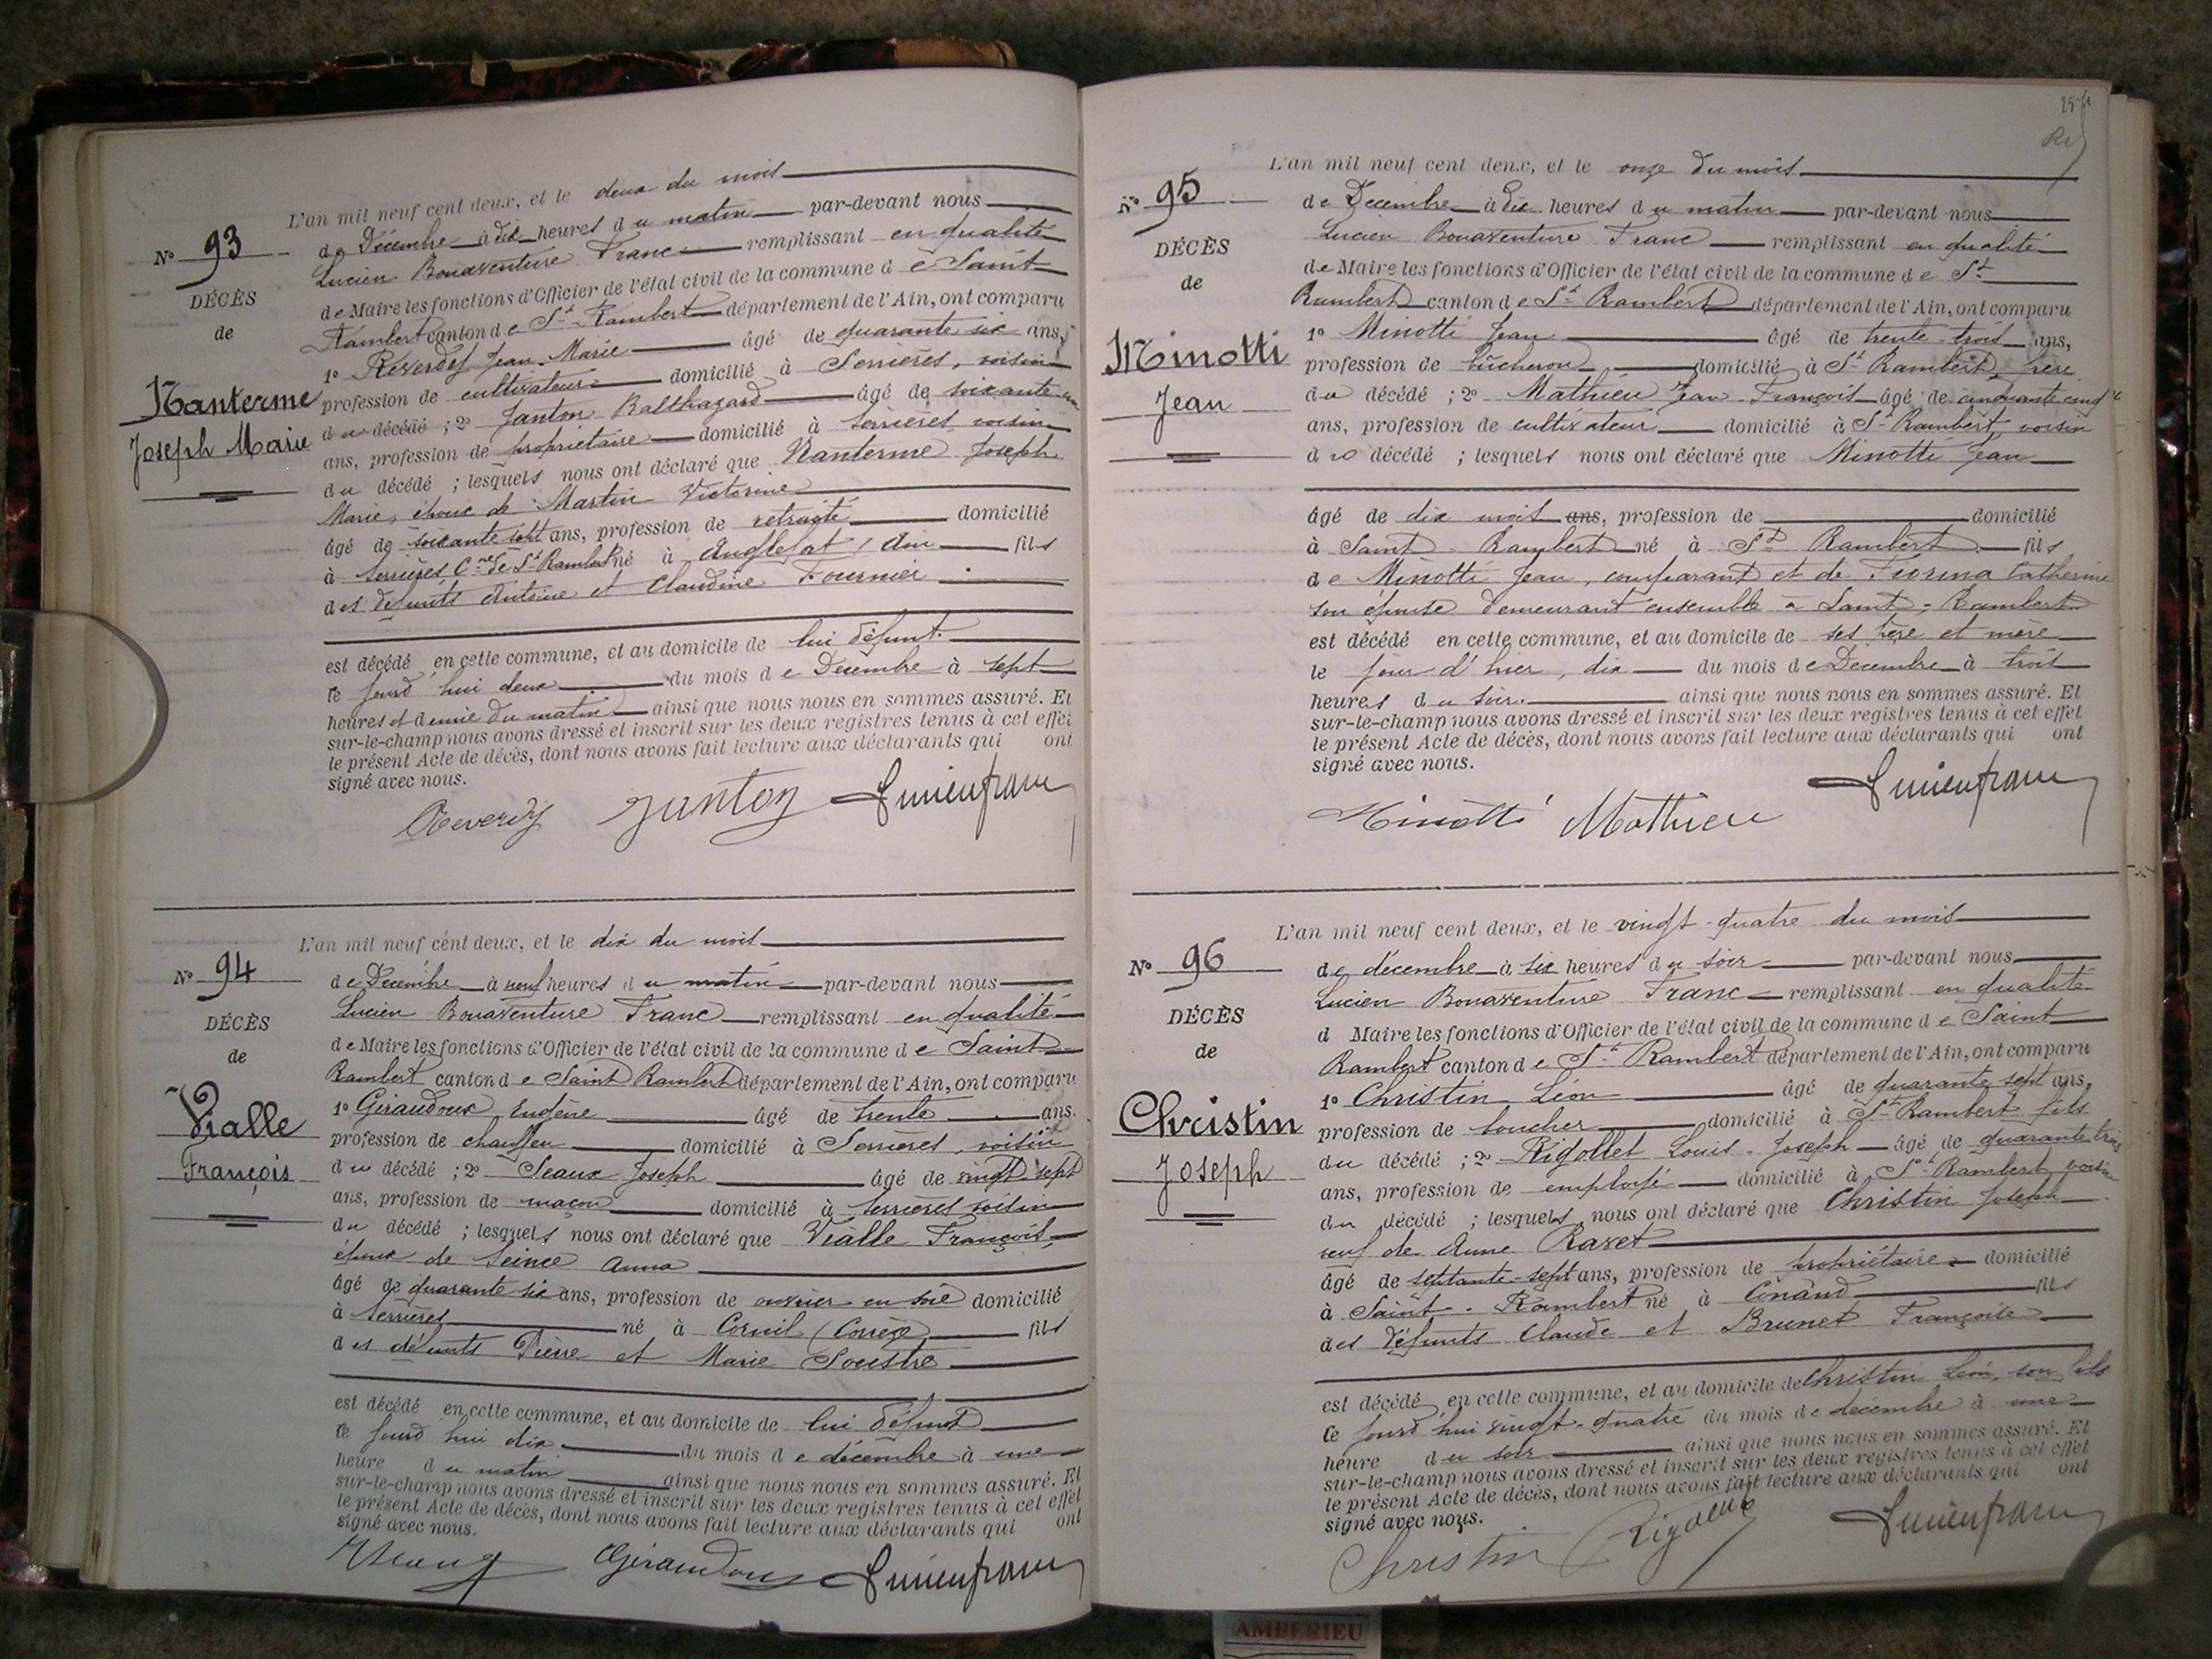 L'an mil neuf cent deux, et le deux du mois
N° 93
de Décembre à dix heures du matin par-devant nous
Lucien Bonaventure Franc remplissant en qualité
DÉCÈS
de Maire les fonctions d'Officier de l'état civil de la commune de Saint
de
Rambert canton de St Rambert département de l'Ain, ont comparu
1° Reverdy Jean Marie âgé de quarante six ans,
Nanterme
profession de cultivateur domicilié à Serrières, voisin
Joseph Marie
du décédé ; 2° Janton Balthazard âgé de soixante un
ans, profession de propriétaire domicilié à Serrières, voisin
du décédé ; lesquels nous ont déclaré que Nanterme Joseph
Marie, époux de Martin Victorine
âgé de soixante sept ans, profession de retraité domicilié
à Serrières Cne de St Rambert né à Anglefort (Ain fils
des défunts Antoine et Claudine Fournier
est décédé en cette commune, et au domicile de lui défunt.
ce jourd'hui deux du mois de Décembre à sept
heures et demie du matin ainsi que nous nous en sommes assuré. Et
sur-le-champ nous avons dressé et inscrit sur les deux registres tenus à cet effet
le présent Acte de décès, dont nous avons fait lecture aux déclarants qui ont
signé avec nous.
Reverdy Janton Lucien franc
L'an mil neuf cent deux, et le dix du mois
N° 94
de Décembre à neuf heures du matin par-devant nous
Lucien Bonaventure Franc remplissant en qualité
DÉCÈS
de Maire les fonctions d'Officier de l'état civil de la commune de Saint
de
Rambert canton de Saint Rambert département de l'Ain, ont comparu
1° Géraudoux Eugène âgé de trente ans.
Vialle
profession de chauffeur domicilié à Serrières, voisin
François
du décédé ; 2° Seaux Joseph âgé de vingt-sept
ans, profession de maçon domicilié à Serrières voisin
du décédé ; lesquels nous ont déclaré que Vialle François,
époux de Seince Anna
âgé de quarante six ans, profession de ouvrier en soie domicilié
à Serrières né à Cornil (Corrèze) fils
des défunts Pierre et Marie Soustre
est décédé en cette commune, et au domicile de lui défunt
ce jourd'hui dix du mois de décembre à une
heure du matin ainsi que nous nous en sommes assuré. Et
sur-le-champ nous avons dressé et inscrit sur les deux registres tenus à cet effet
le présent Acte de décès, dont nous avons fait lecture aux déclarants qui ont
signé avec nous.
Géraudoux Lucien franc
L'an mil neuf cent deux, et le onze du mois
N° 95
de Décembre à dix heures du matin par-devant nous
Lucien Bonaventure Franc remplissant en qualité
DÉCÈS
de Maire les fonctions d'Officier de l'état civil de la commune de St
de
Rambert canton de St Rambert département de l'Ain, ont comparu
1° Minotti Jean âgé de trente-trois ans,
Minotti
profession de bûcheron domicilié à St Rambert, père
Jean
du décédé ; 2° Mathieu Jean François âgé de cinquante cinq
ans, profession de cultivateur domicilié à St Rambert, voisin
du décédé ; lesquels nous ont déclaré que Minotti Jean
âgé de dix mois ans, profession de domicilié
à Saint-Rambert né à St Rambert fils
de Minotti Jean, comparant et de Fiorina Catherine
son épouse demeurant ensemble à Saint-Rambert
est décédé en cette commune, et au domicile de ses père et mère
le jour d'hier, dix du mois de Décembre à trois
heures du soir. ainsi que nous nous en sommes assuré. Et
sur-le-champ nous avons dressé et inscrit sur les deux registres tenus à cet effet
le présent Acte de décès, dont nous avons fait lecture aux déclarants qui ont
signé avec nous.
Minotti Mathieu Lucien franc
L'an mil neuf cent deux, et le vingt-quatre du mois
N° 96
de décembre à six heures du soir par-devant nous
Lucien Bonaventure Franc remplissant en qualité
DÉCÈS
d Maire les fonctions d'Officier de l'état civil de la commune de Saint
de
Rambert canton de St Rambert département de l'Ain, ont comparu
1° Christin Léon âgé de quarante sept ans,
Christin
profession de boucher domicilié à St Rambert fils
Joseph
du décédé ; 2° Rigollet Louis-Joseph âgé de quarante trois
ans, profession de employé domicilié à St Rambert, voisin
du décédé ; lesquels nous ont déclaré que Christin Joseph
veuf de Anne Ravet
âgé de septante-sept ans, profession de propriétaire domicilié
à Saint-Rambert né à Conand fils
des défunts Claude et Brunet Françoise
est décédé en cette commune, et au domicile de Christin Léon, son fils
ce jourd'hui vingt-quatre du mois de décembre à une
heure du soir ainsi que nous nous en sommes assuré. Et
sur-le-champ nous avons dressé et inscrit sur les deux registres tenus à cet effet
le présent Acte de décès, dont nous avons fait lecture aux déclarants qui ont
signé avec nous.
Christin Rigollet Lucien franc
AMBERIEU